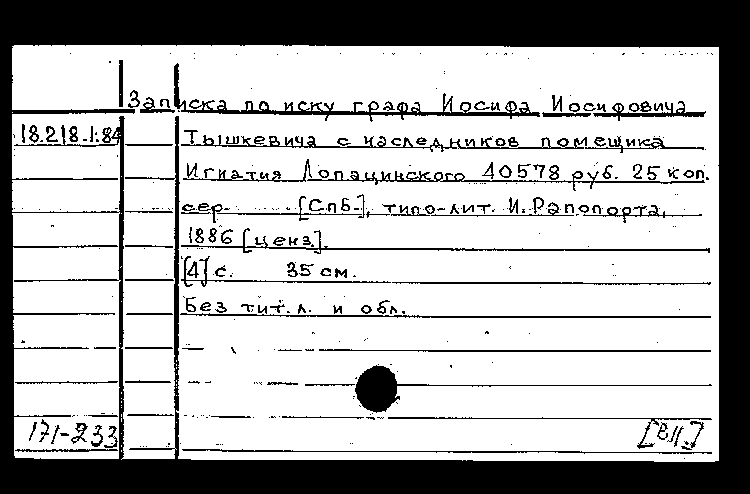 Записка по иску графа Иосифа Иосифовича
18.218.1.84 Тышкевича с наследников помещика
Игнатия Лопацинского 40578 руб. 25 коп.
сер. [СПБ.], типо-лит. И. Рапопорта,
1886 [ценз].
[4] с. 35 см.
Без тит. л. и обл.
171-233 [ВП.]